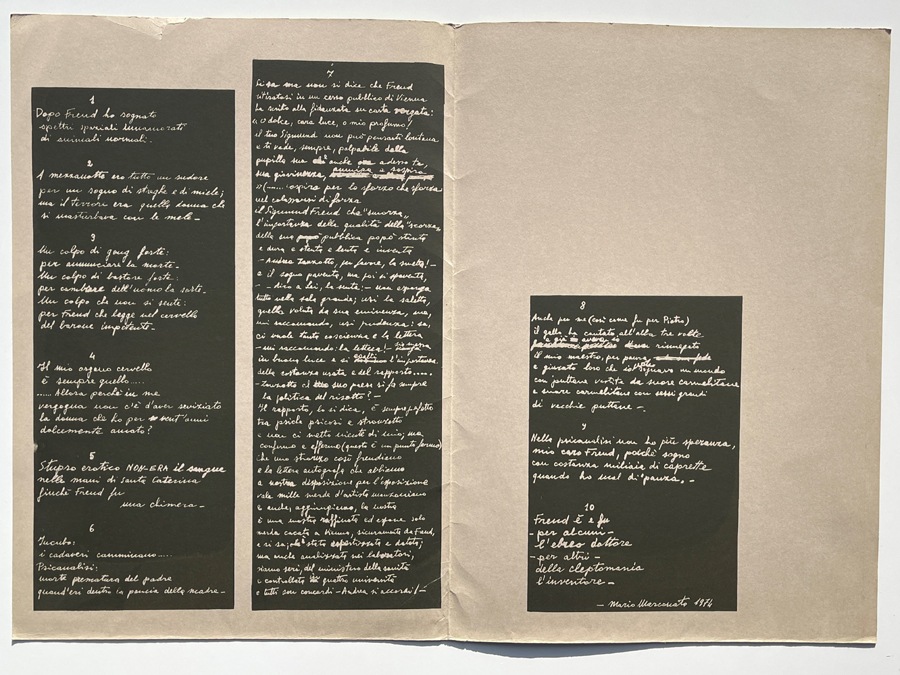 1
Dopo Freud ho sognato
spettri spaziali innamorati
di animali normali.
2
A mezzanotte ero tutto un sudore
per un sogno di streghe e di miele;
ma il terrore era quella donna che
si masturbava con le mele_
3
Un colpo di gong forte:
per annunciare la morte_
Un colpo di bastone forte:
per cambiare dell'uomo la sorte_
Un colpo che non si sente:
per Freud che legge nel cervello
del barone impotente_
4
Il mio organo cervello
è sempre quello.....
...... Allora perchè in me
vergogna non c'è d'aver seviziato
la donna che ho per vent'anni
dolcemente amato?
5
Stupro erotico NON ERA il sangue
nelle mani di Santa Caterina
finchè Freud fu
una chimera_
6
Incubo:
i cadaveri camminano....
Psicanalisi:
morte prematura del padre
quand'eri dentro la pancia della madre_
7
Si sa ma non si dice che Freud
ritiratosi in un cesso pubblico di Vienna
ha scritto alla fidanzata su carta vergata:
"O dolce, cara luce, o mio profumo!
il tuo Sigmund non può pensarti lontana
e ti vede, sempre, palpabile dalla
pupilla sua anche adesso ta,
sua giovinezza, ammira e sospira
o (......ospira per lo sforzo che sforza
nel
il Sigmund Freud che "smorza"
l'importanza della qualità della "scorza"
della sua pubblica popò stinta
e dura e stenta e lenta e inventa
- Andrea Zanzotto, per favore, la smetta! -
e il sogno paventa, ma poi si spaventa,
- dico a lei, la smetta: - non esponga
tutto nella sala grande; usi la saletta,
quella voluta da sua eminenza, ma,
mi raccomando, usi prudenza: sa,
ci vuole tanta coscienza e la lettera
- mi raccomando: la lettera! -
in buona luce e si esalti l'importanza
della costanza usata e del rapporto.....
- Zanzotto al suo paese si fa sempre
la politica del risotto? -
Il rapporto, lo si dica, è sempre
fra psiche psicosi e stronzetto
e non ci metto niente di mio; ma
confermo e affermo (questo è un punto fermo)
che uno stronzo così freudiano
e la lettera autografa che abbiamo
a nostra disposizione per l'esposizione
vale mille merde d'artista manzoniano
e anche, aggiungiamo, la nostra
è una mostra raffinata ed espone solo
merda cacata a Vienna, sicuramente da Freud,
e si sa; è stata espertizzata e datata;
ma anche analizzata nei laboratori,
siamo seri, del ministero della sanità
e controllata in quattro università
e tutti son concordi - Andrea si accordi! -
8
Anche per me (così come fu per Pietro)
il gallo ha cantato all'alba tre volte
e già avevo rinnegato
il mio maestro, per paura,
e giurato loro che sognavo un mondo
con puttane vestite da suore carmelitane
e suore carmelitane con sessi grandi
di vecchie puttane_
9
Nella psicanalisi non ho più speranza,
mio caro Freud, poichè sogno
con costanza miliaia di caprette
quando ho mal di panza._
10
Freud è e fu
- per alcuni -
l'ebreo dottore
- per altri -
della cleptomania
l'inventore_
- Mario Marconato 1974